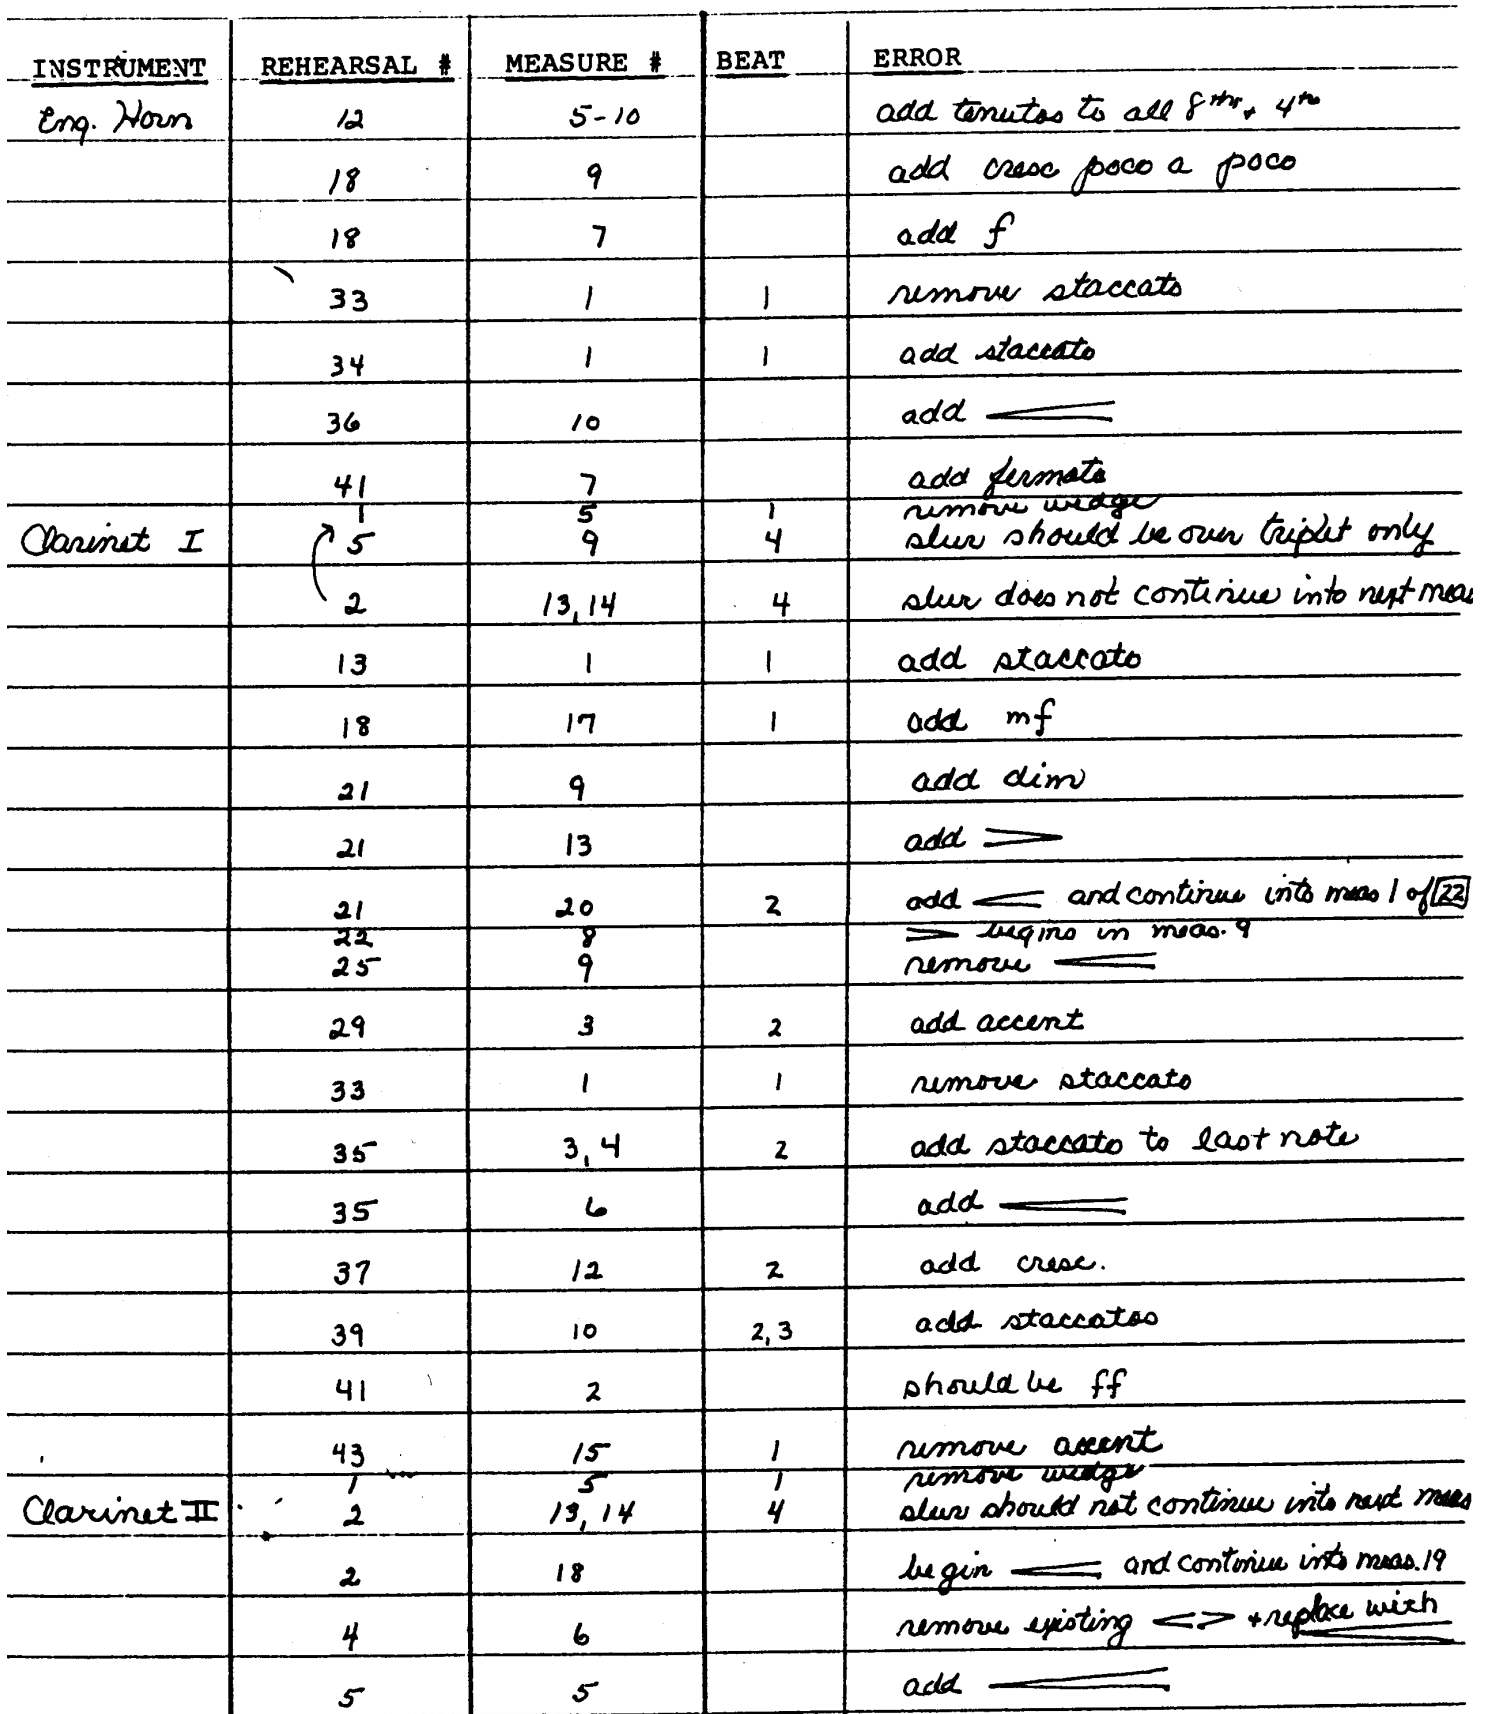 INSTRUMENT REHEARSAL # MEASURE # BEAT ERROR
Eng. Horn 12 5-10 add tenutos to all 8ths + 4ths
18 9 add cresc poco a poco
18 7 add f
33 1 1 remove staccato
34 1 1 add staccato
36 10 add
41 7 add fermata
1 5 1 remove wedge
Clarinet I 5 9 4 slur should be over triplet only
2 13, 14 4 slur does not continue into next meas
13 1 1 add staccato
18 17 1 add mf
21 9 add dim
21 13 add
21 20 2 add and continue into meas 1 of 22
22 8 begins in meas. 9
25 9 remove
29 3 2 add accent
33 1 1 remove staccato
35 3, 4 2 add staccato to last note
35 6 add
37 12 2 add cresc.
39 10 2, 3 add staccatos
41 2 should be ff
43 15 1 remove accent
1 5 1 remove wedge
Clarinet II 2 13, 14 4 slur should not continue into next meas
2 18 begin and continue into meas. 19
4 6 remove existing < > + replace with
5 5 add